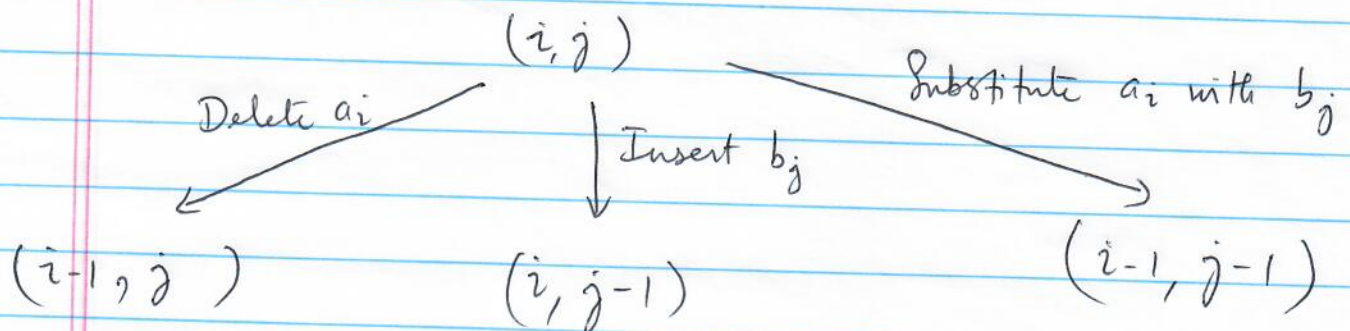 (i, j)
Delete aᵢ
Insert bⱼ
Substitute aᵢ with bⱼ
(i-1, j)
(i, j-1)
(i-1, j-1)